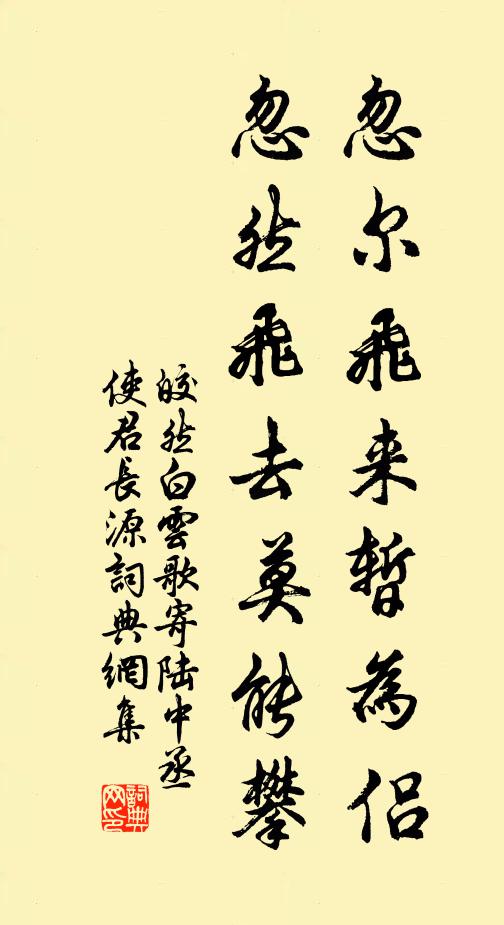 忽尔飛来暫為侣
忽然飛去莫能攀
皎然白雲歌寄陆中丞
使君長源詞典網集
詞典
网印